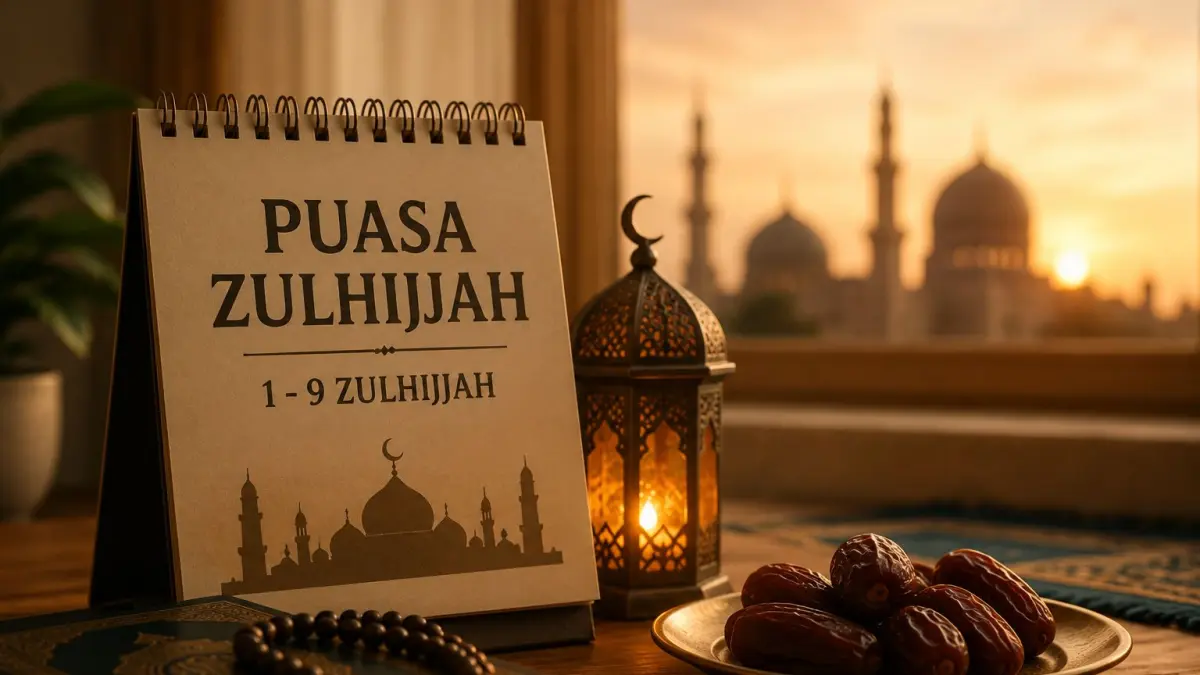 PUASA
ZULHIJJAH
1 - 9 ZULHIJJAH